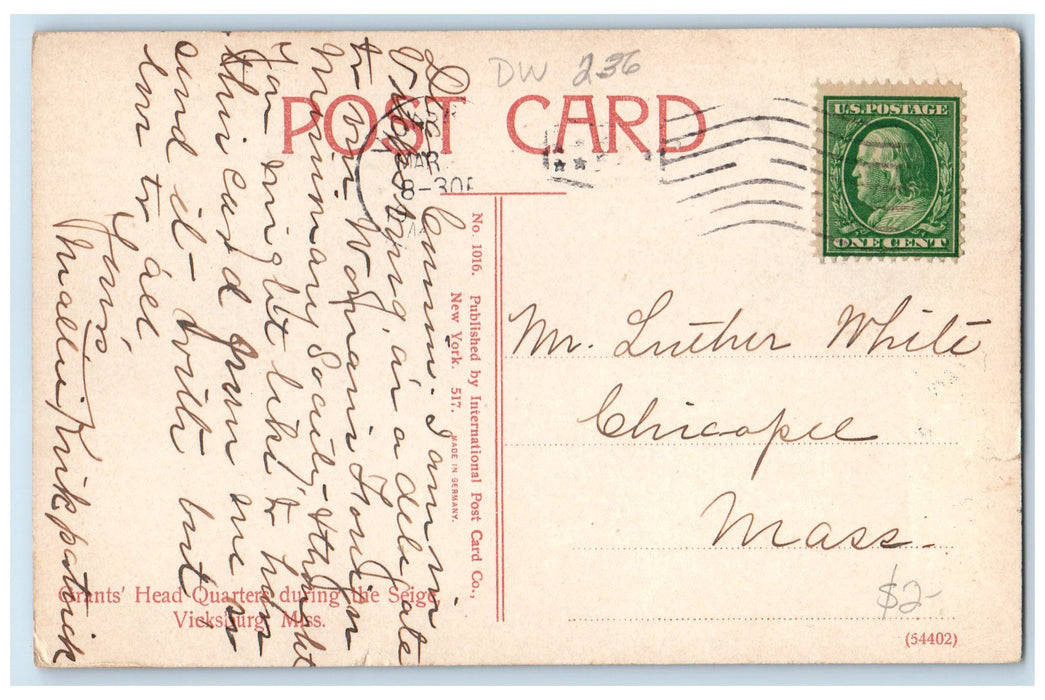 DW 236
POST CARD
MAR
8-30P
U.S. POSTAGE
ONE CENT
Dear Cousin. I am in
Vicksburg as a delegate
to our Woman's Foreign
Missionary Society - thought
you might like to have
this card from me so
send it - with but
love to all
Yours,
Mattie Kirkpatrick
No. 1016. Published by International Post Card Co.,
New York. 517. MADE IN GERMANY.
Mr. Luther White
Chicopee
Mass.
$2-
Grants' Head Quarters during the Seige
Vicksburg, Miss.
(54402)